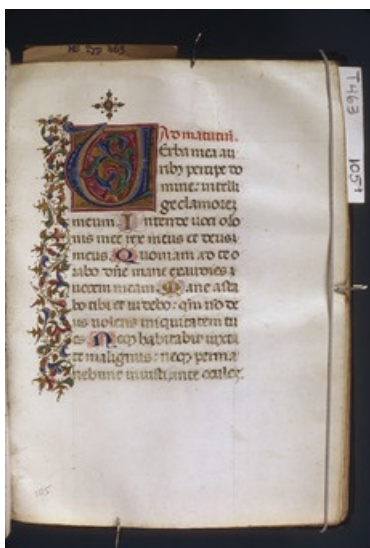 MS Typ 463
T463
105r
Ad matutin̄.
Erba mea au
ribꝫ percipe do
mine: intelli
ge clamorez
meum. Intende uoci oīo
nis mee rex meus et deus
meus. Quoniam ad te o
rabo dn̄e mane exaudies
uocem meam. Mane asta
bo tibi et uidebo: qm̄ nō de
us uolens iniquitatem tu
es. Neqꝫ habitabit iuxta
te malignus: neqꝫ perma
nebunt iniusti ante oculos
105